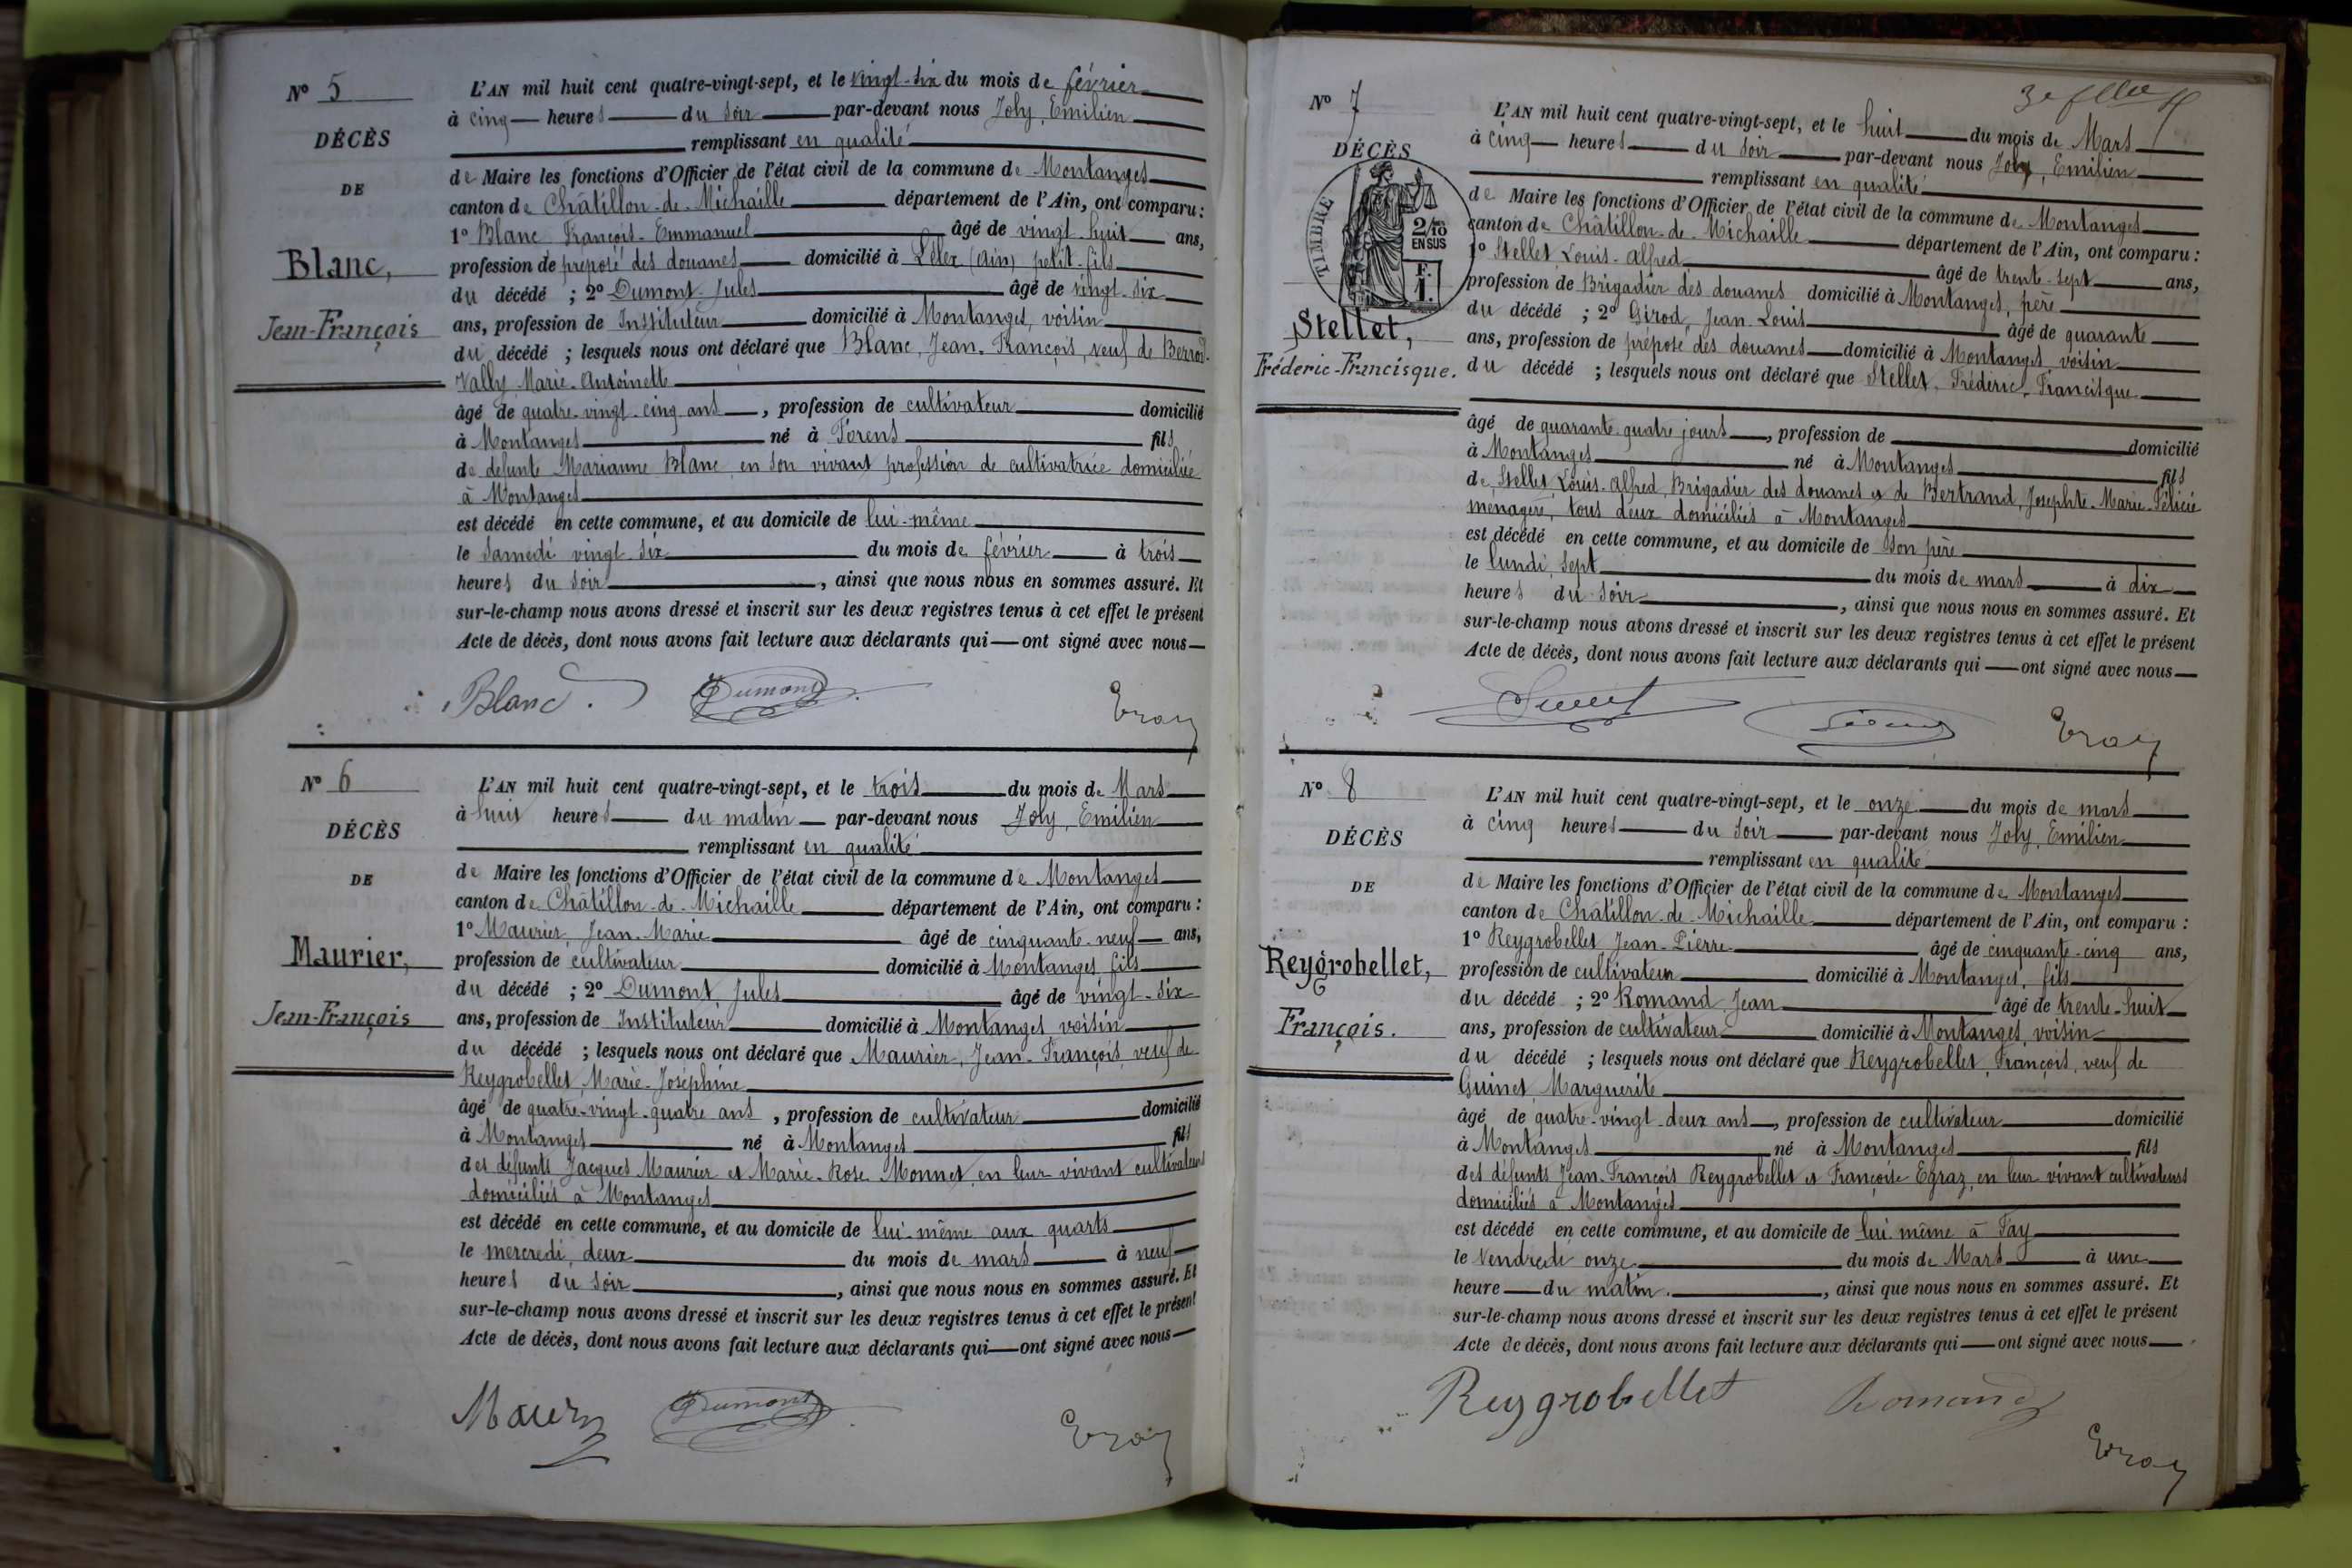 Nº 5
DÉCÈS
DE
Blanc,
Jean-François
L'AN mil huit cent quatre-vingt-sept, et le vingt-six du mois de février
à cinq heures du soir par-devant nous Joly, Emilien
remplissant en qualité
de Maire les fonctions d'Officier de l'état civil de la commune de Montanges
canton de Châtillon-de-Michaille département de l'Ain, ont comparu :
1º Blanc François-Emmanuel âgé de vingt-huit ans,
profession de préposé des douanes domicilié à Lélex (Ain) petit-fils
du décédé ; 2º Dumont Jules âgé de vingt-six
ans, profession de Instituteur domicilié à Montanges, voisin
du décédé ; lesquels nous ont déclaré que Blanc, Jean-François, veuf de Berrod-
Vally Marie-Antoinette
âgé de quatre-vingt-cinq ans, profession de cultivateur domicilié
à Montanges né à Forens fils
de défunte Marianne Blanc en son vivant profession de cultivatrice domiciliée
à Montanges
est décédé en cette commune, et au domicile de lui-même
le Samedi vingt-six du mois de février à trois
heures du soir, ainsi que nous nous en sommes assuré. Et
sur-le-champ nous avons dressé et inscrit sur les deux registres tenus à cet effet le présent
Acte de décès, dont nous avons fait lecture aux déclarants qui ont signé avec nous
Blanc. Dumont
Nº 6
DÉCÈS
DE
Maurier,
Jean-François
L'AN mil huit cent quatre-vingt-sept, et le trois du mois de Mars
à huit heures du matin par-devant nous Joly, Emilien
remplissant en qualité
de Maire les fonctions d'Officier de l'état civil de la commune de Montanges
canton de Châtillon-de-Michaille département de l'Ain, ont comparu :
1º Maurier, Jean-Marie âgé de cinquante-neuf ans,
profession de cultivateur domicilié à Montanges fils
du décédé ; 2º Dumont, Jules âgé de vingt-six
ans, profession de Instituteur domicilié à Montanges voisin
du décédé ; lesquels nous ont déclaré que Maurier, Jean-François, veuf de
Reygrobellet, Marie-Joséphine
âgé de quatre-vingt-quatre ans, profession de cultivateur domicilié
à Montanges né à Montanges fils
des défunts Jacques Maurier et Marie-Rose Monnet, en leur vivant cultivateurs
domiciliés à Montanges
est décédé en cette commune, et au domicile de lui-même aux quarts
le mercredi deux du mois de mars à neuf
heures du soir, ainsi que nous nous en sommes assuré. Et
sur-le-champ nous avons dressé et inscrit sur les deux registres tenus à cet effet le présent
Acte de décès, dont nous avons fait lecture aux déclarants qui ont signé avec nous
Dumont
Nº 7
DÉCÈS
TIMBRE
2/10
EN SUS
F.
1.
Stellet,
Fréderic-Francisque.
L'AN mil huit cent quatre-vingt-sept, et le huit du mois de Mars
à cinq heures du soir par-devant nous Joly, Emilien
remplissant en qualité
de Maire les fonctions d'Officier de l'état civil de la commune de Montanges
canton de Châtillon-de-Michaille département de l'Ain, ont comparu :
1º Stellet, Louis-Alfred âgé de trente-sept ans,
profession de Brigadier des douanes domicilié à Montanges, père
du décédé ; 2º Girod, Jean-Louis âgé de quarante
ans, profession de préposé des douanes domicilié à Montanges, voisin
du décédé ; lesquels nous ont déclaré que Stellet, Fréderic-Francisque
âgé de quarante-quatre jours, profession de domicilié
à Montanges né à Montanges fils
de Stellet, Louis-Alfred, Brigadier des douanes et de Bertrand, Josephte-Marie-Félicie
ménagère, tous deux domiciliés à Montanges
est décédé en cette commune, et au domicile de son père
le lundi sept du mois de mars à dix
heures du soir, ainsi que nous nous en sommes assuré. Et
sur-le-champ nous avons dressé et inscrit sur les deux registres tenus à cet effet le présent
Acte de décès, dont nous avons fait lecture aux déclarants qui ont signé avec nous
Nº 8
DÉCÈS
DE
Reygrobellet,
François.
L'AN mil huit cent quatre-vingt-sept, et le onze du mois de mars
à cinq heures du soir par-devant nous Joly, Emilien
remplissant en qualité
de Maire les fonctions d'Officier de l'état civil de la commune de Montanges
canton de Châtillon-de-Michaille département de l'Ain, ont comparu :
1º Reygrobellet Jean-Pierre âgé de cinquante-cinq ans,
profession de cultivateur domicilié à Montanges, fils
du décédé ; 2º Romand Jean âgé de trente-huit
ans, profession de cultivateur domicilié à Montanges, voisin
du décédé ; lesquels nous ont déclaré que Reygrobellet, François, veuf de
Guinet, Marguerite
âgé de quatre-vingt-deux ans, profession de cultivateur domicilié
à Montanges né à Montanges fils
des défunts Jean-François Reygrobellet et Françoise Egraz, en leur vivant cultivateurs
domiciliés à Montanges
est décédé en cette commune, et au domicile de lui-même à Fay
le Vendredi onze du mois de Mars à une
heure du matin., ainsi que nous nous en sommes assuré. Et
sur-le-champ nous avons dressé et inscrit sur les deux registres tenus à cet effet le présent
Acte de décès, dont nous avons fait lecture aux déclarants qui ont signé avec nous
Reygrobellet Romand